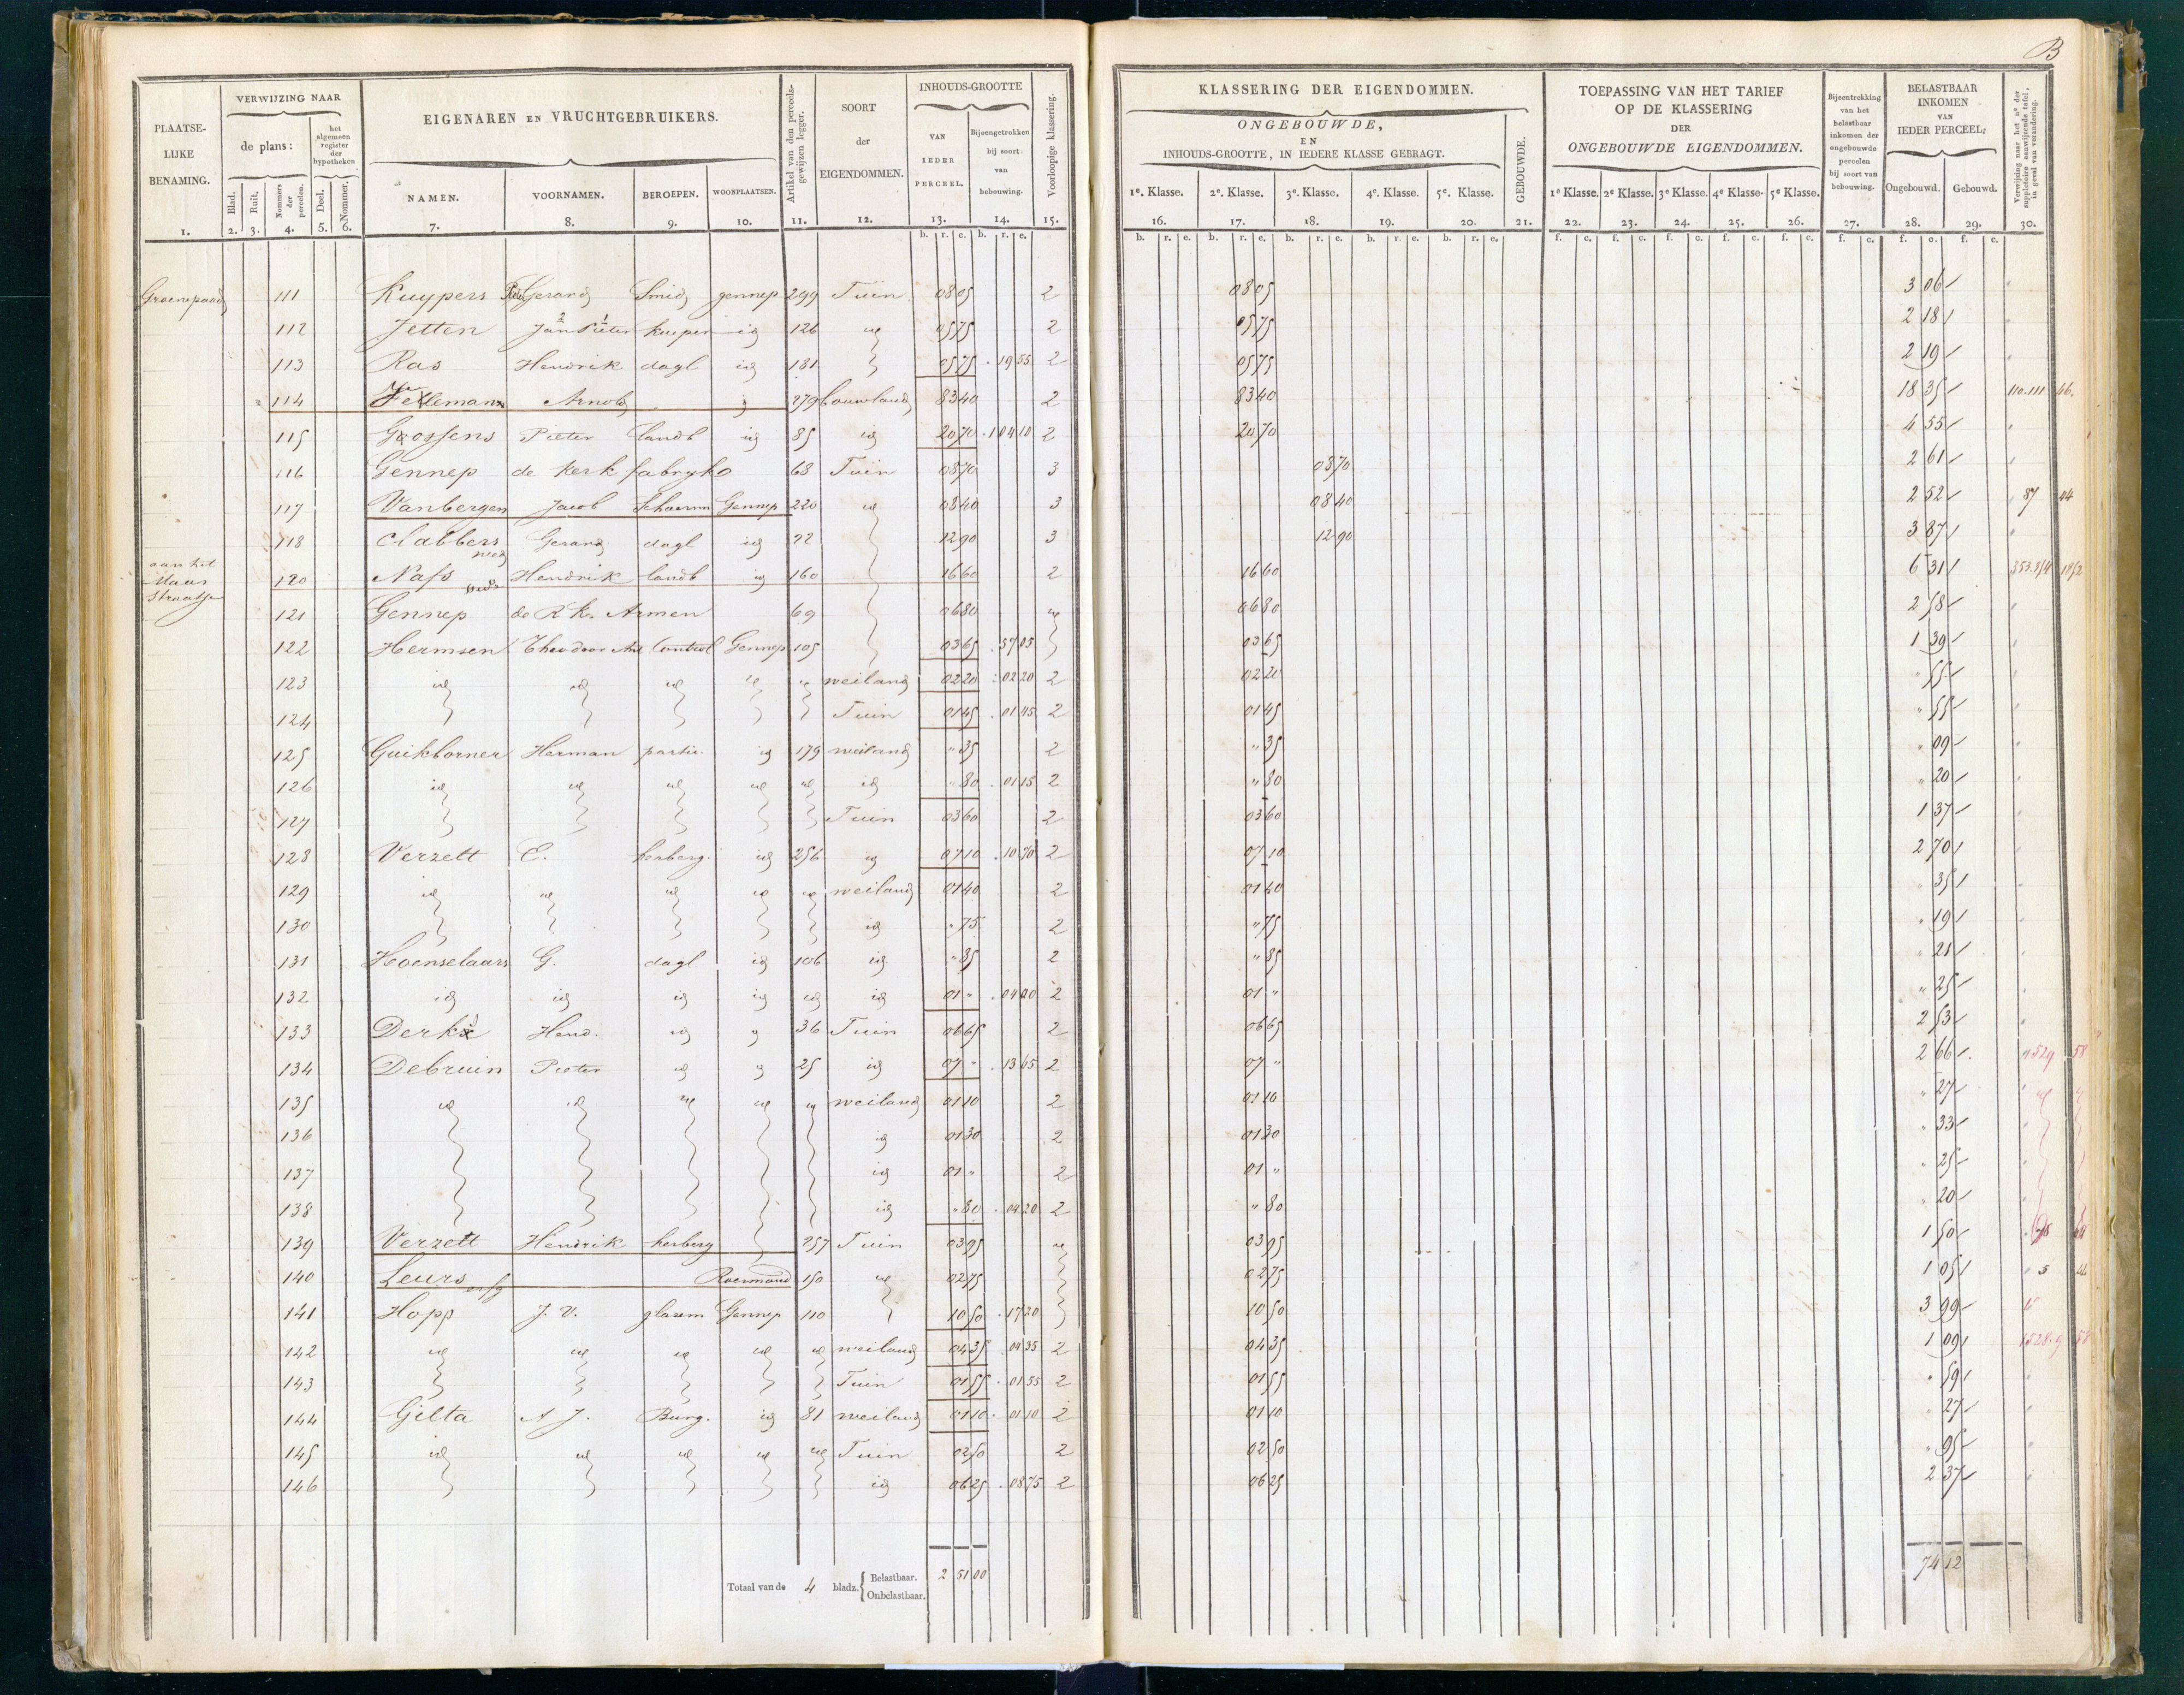 B
PLAATSE-LIJKE BENAMING. 1.
VERWIJZING NAAR
de plans:
Blad. 2.
Ruit. 3.
Nommers der perceelen. 4.
het algemeen register der hypotheken
Deel. 5.
Nommer. 6.
EIGENAREN EN VRUCHTGEBRUIKERS.
NAMEN. 7.
VOORNAMEN. 8.
BEROEPEN. 9.
WOONPLAATSEN. 10.
Artikel van den perceels-gewijzen legger. 11.
SOORT der EIGENDOMMEN. 12.
INHOUDS-GROOTTE
VAN IEDER PERCEEL. 13.
Bijeengetrokken bij soort van bebouwing. 14.
Voorloopige klassering. 15.
b. r. e. b. r. e.
KLASSERING DER EIGENDOMMEN.
ONGEBOUWDE,
EN
INHOUDS-GROOTTE, IN IEDERE KLASSE GEBRAGT.
1e. Klasse. 16.
2e. Klasse. 17.
3e. Klasse. 18.
4e. Klasse. 19.
5e. Klasse. 20.
GEBOUWDE. 21.
TOEPASSING VAN HET TARIEF
OP DE KLASSERING
DER
ONGEBOUWDE EIGENDOMMEN.
1e Klasse. 22.
2e Klasse. 23.
3e Klasse. 24.
4e Klasse. 25.
5e Klasse. 26.
Bijeentrekking van het belastbaar inkomen der ongebouwde perceelen bij soort van bebouwing. 27.
BELASTBAAR INKOMEN VAN IEDER PERCEEL:
Ongebouwd. 28.
Gebouwd. 29.
Verwijzing naar het no der suppletoire aanwijzende tafel, in geval van verandering. 30.
Groenepand 111 Kuypers Gerard Smid gennep 299 Tuin 08 05 2 08 05 3 06
112 Jetten Jan Pieter kuiper id 126 id 05 75 2 05 75 2 18
113 Ras Hendrik dagl id 181 05 75 . 19 55 2 05 75 2 19
114 Arnold 279 bouwland 83 40 2 83 40 18 35 110.111 46.
115 Goossens Pieter landb id 85 id 20 70 . 1 04 10 2 20 70 4 55
116 Gennep de kerk fabryk 68 Tuin 08 70 3 08 70 2 61
117 Vanbergen Jacob Schoenm Gennep 220 id 08 40 3 08 40 2 52 87 44
118 Clabbers Gerard dagl id 22 12 90 3 12 90 3 87
aan het Maas straatje 120 Nass wed Hendrik landb id 160 16 60 2 16 60 6 31 1852
121 Gennep de R k. Armen 69 06 80 id 06 80 2 58
122 Hermsen Theodoor Ant Control Gennep 105 03 65 . 57 05 03 65 1 39
123 id id id id id weiland 02 20 . 02 20 2 02 20 " 55
124 Tuin 01 45 . 01 45 2 01 45 " 55
125 Guikborner Herman partic. id 179 weiland " 35 2 " 35 " 09
126 id id id id id id " 80 . 01 15 2 " 80 " 20
127 Tuin 03 60 2 03 60 1 37
128 Verzett E. herberg. id 256 id 07 10 . 10 70 2 07 10 2 70
129 id id id id id weiland 01 40 2 01 40 35
130 id " 75 2 " 75 " 19
131 Hoenselaars G. dagl id 106 id " 85 2 " 85 " 21
132 id id id id id id 01 " . 04 00 2 01 " " 25
133 Derks Hend. id id 36 Tuin 06 65 2 06 65 2 53
134 Debruin Pieter id id 25 id 07 " . 13 65 2 07 " 2 66 1529 58
135 id id id id id weiland 01 10 2 01 10 " 27 id
136 id 01 30 2 01 30 " 33
137 id 01 " 2 01 " " 25
138 id " 80 . 04 20 2 " 80 " 20
139 Verzett Hendrik herberg 257 Tuin 03 95 id 03 95 1 50
140 Leurs erfg Roermond 150 id 02 75 02 75 1 05 5 44
141 Hopp J. V. glasem Gennep 110 10 50 . 17 20 10 50 3 99
142 id id id id id weiland 04 35 . 04 35 2 04 35 1 09 58
143 Tuin 01 55 . 01 55 2 01 55 " 59
144 Gilta A J. Burg. id 81 weiland 01 10 . 01 10 2 01 10 " 27
145 id id id id id Tuin 02 50 2 02 50 " 95
146 id 06 25 . 08 75 2 06 25 2 37
Totaal van de 4 bladz. { Belastbaar. 2 51 00 74 12
Onbelastbaar.